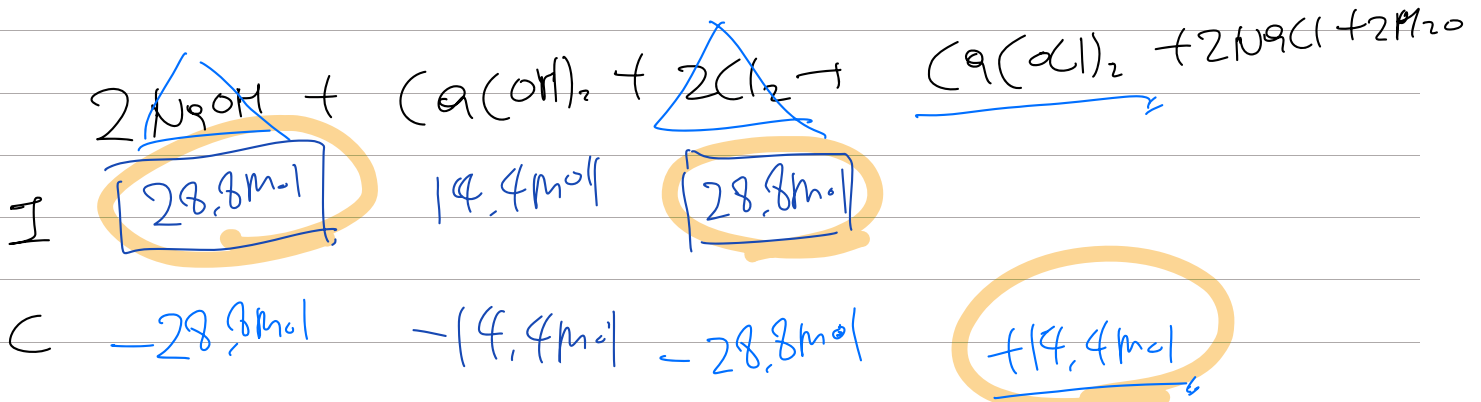 2NaOH + Ca(OH)₂ + 2Cl₂ → Ca(OCl)₂ + 2NaCl + 2H₂O
I 28,8mol 14,4mol 28,8mol
C -28,8mol -14,4mol -28,8mol +14,4mol